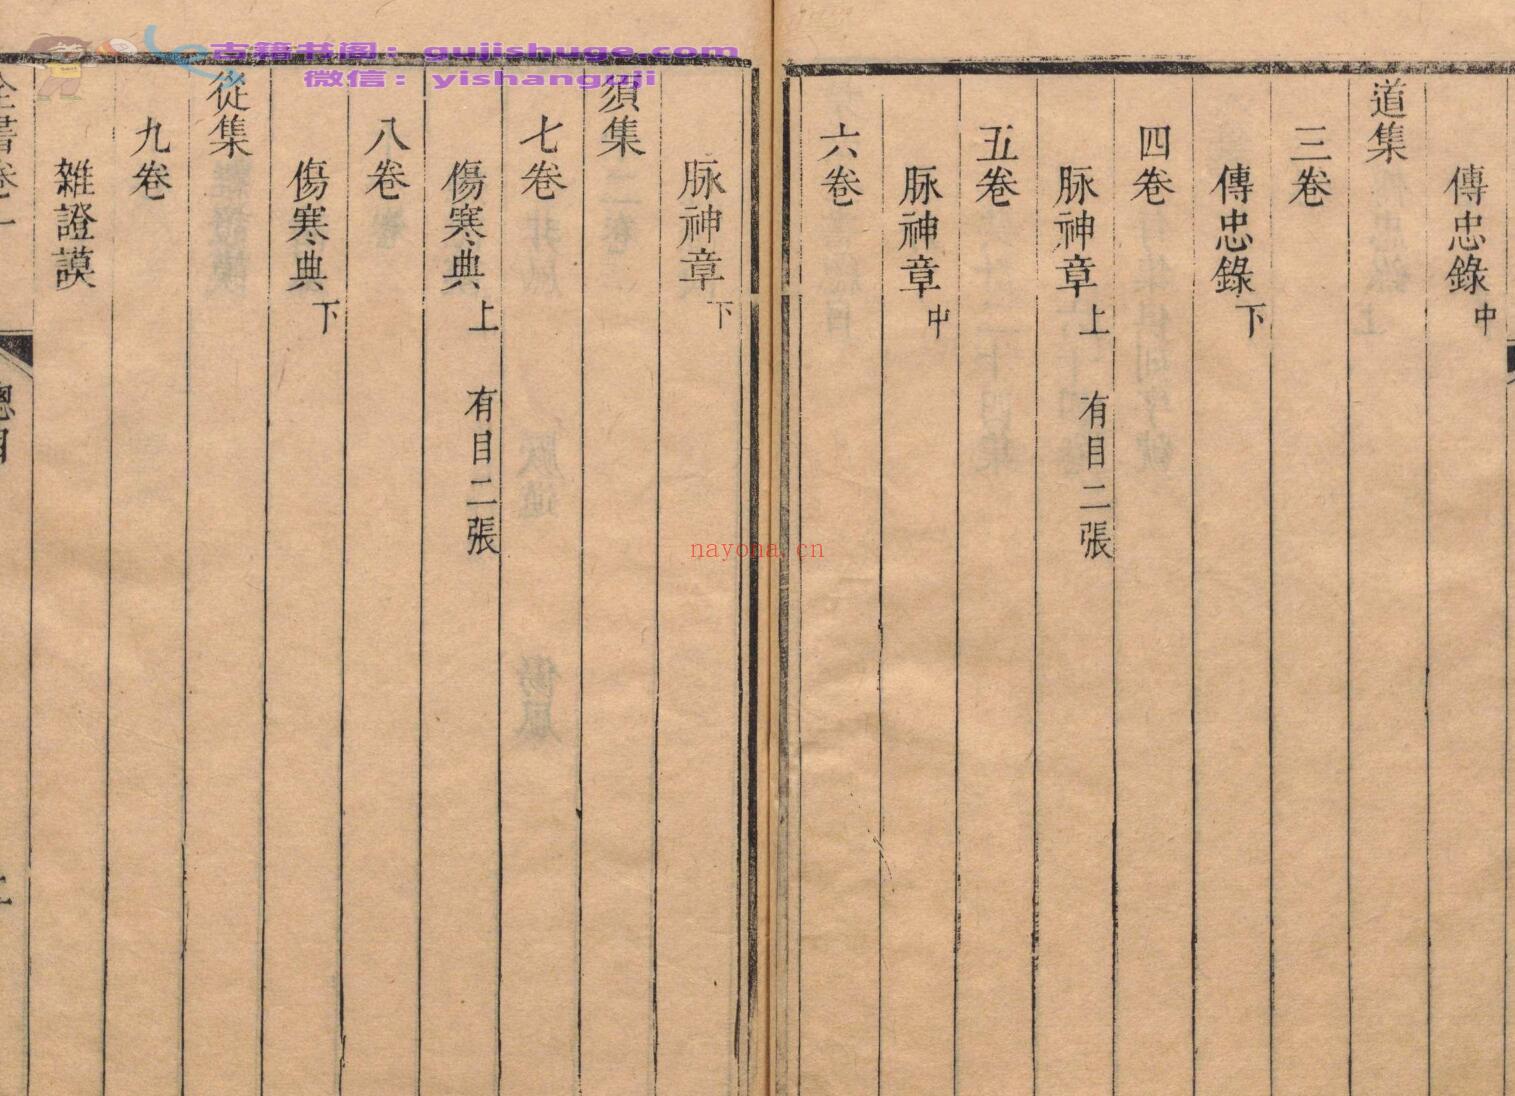 傳忠錄中
道集
三卷
傳忠錄下
四卷
脉神章上 有目二張
五卷
脉神章中
六卷
脉神章下
須集
七卷
傷寒典上 有目二張
八卷
傷寒典下
從集
九卷
雜證謨
全書卷一 總目 二
古籍书阁:gujishuge.com
微信:yishanguji
nayona.cn